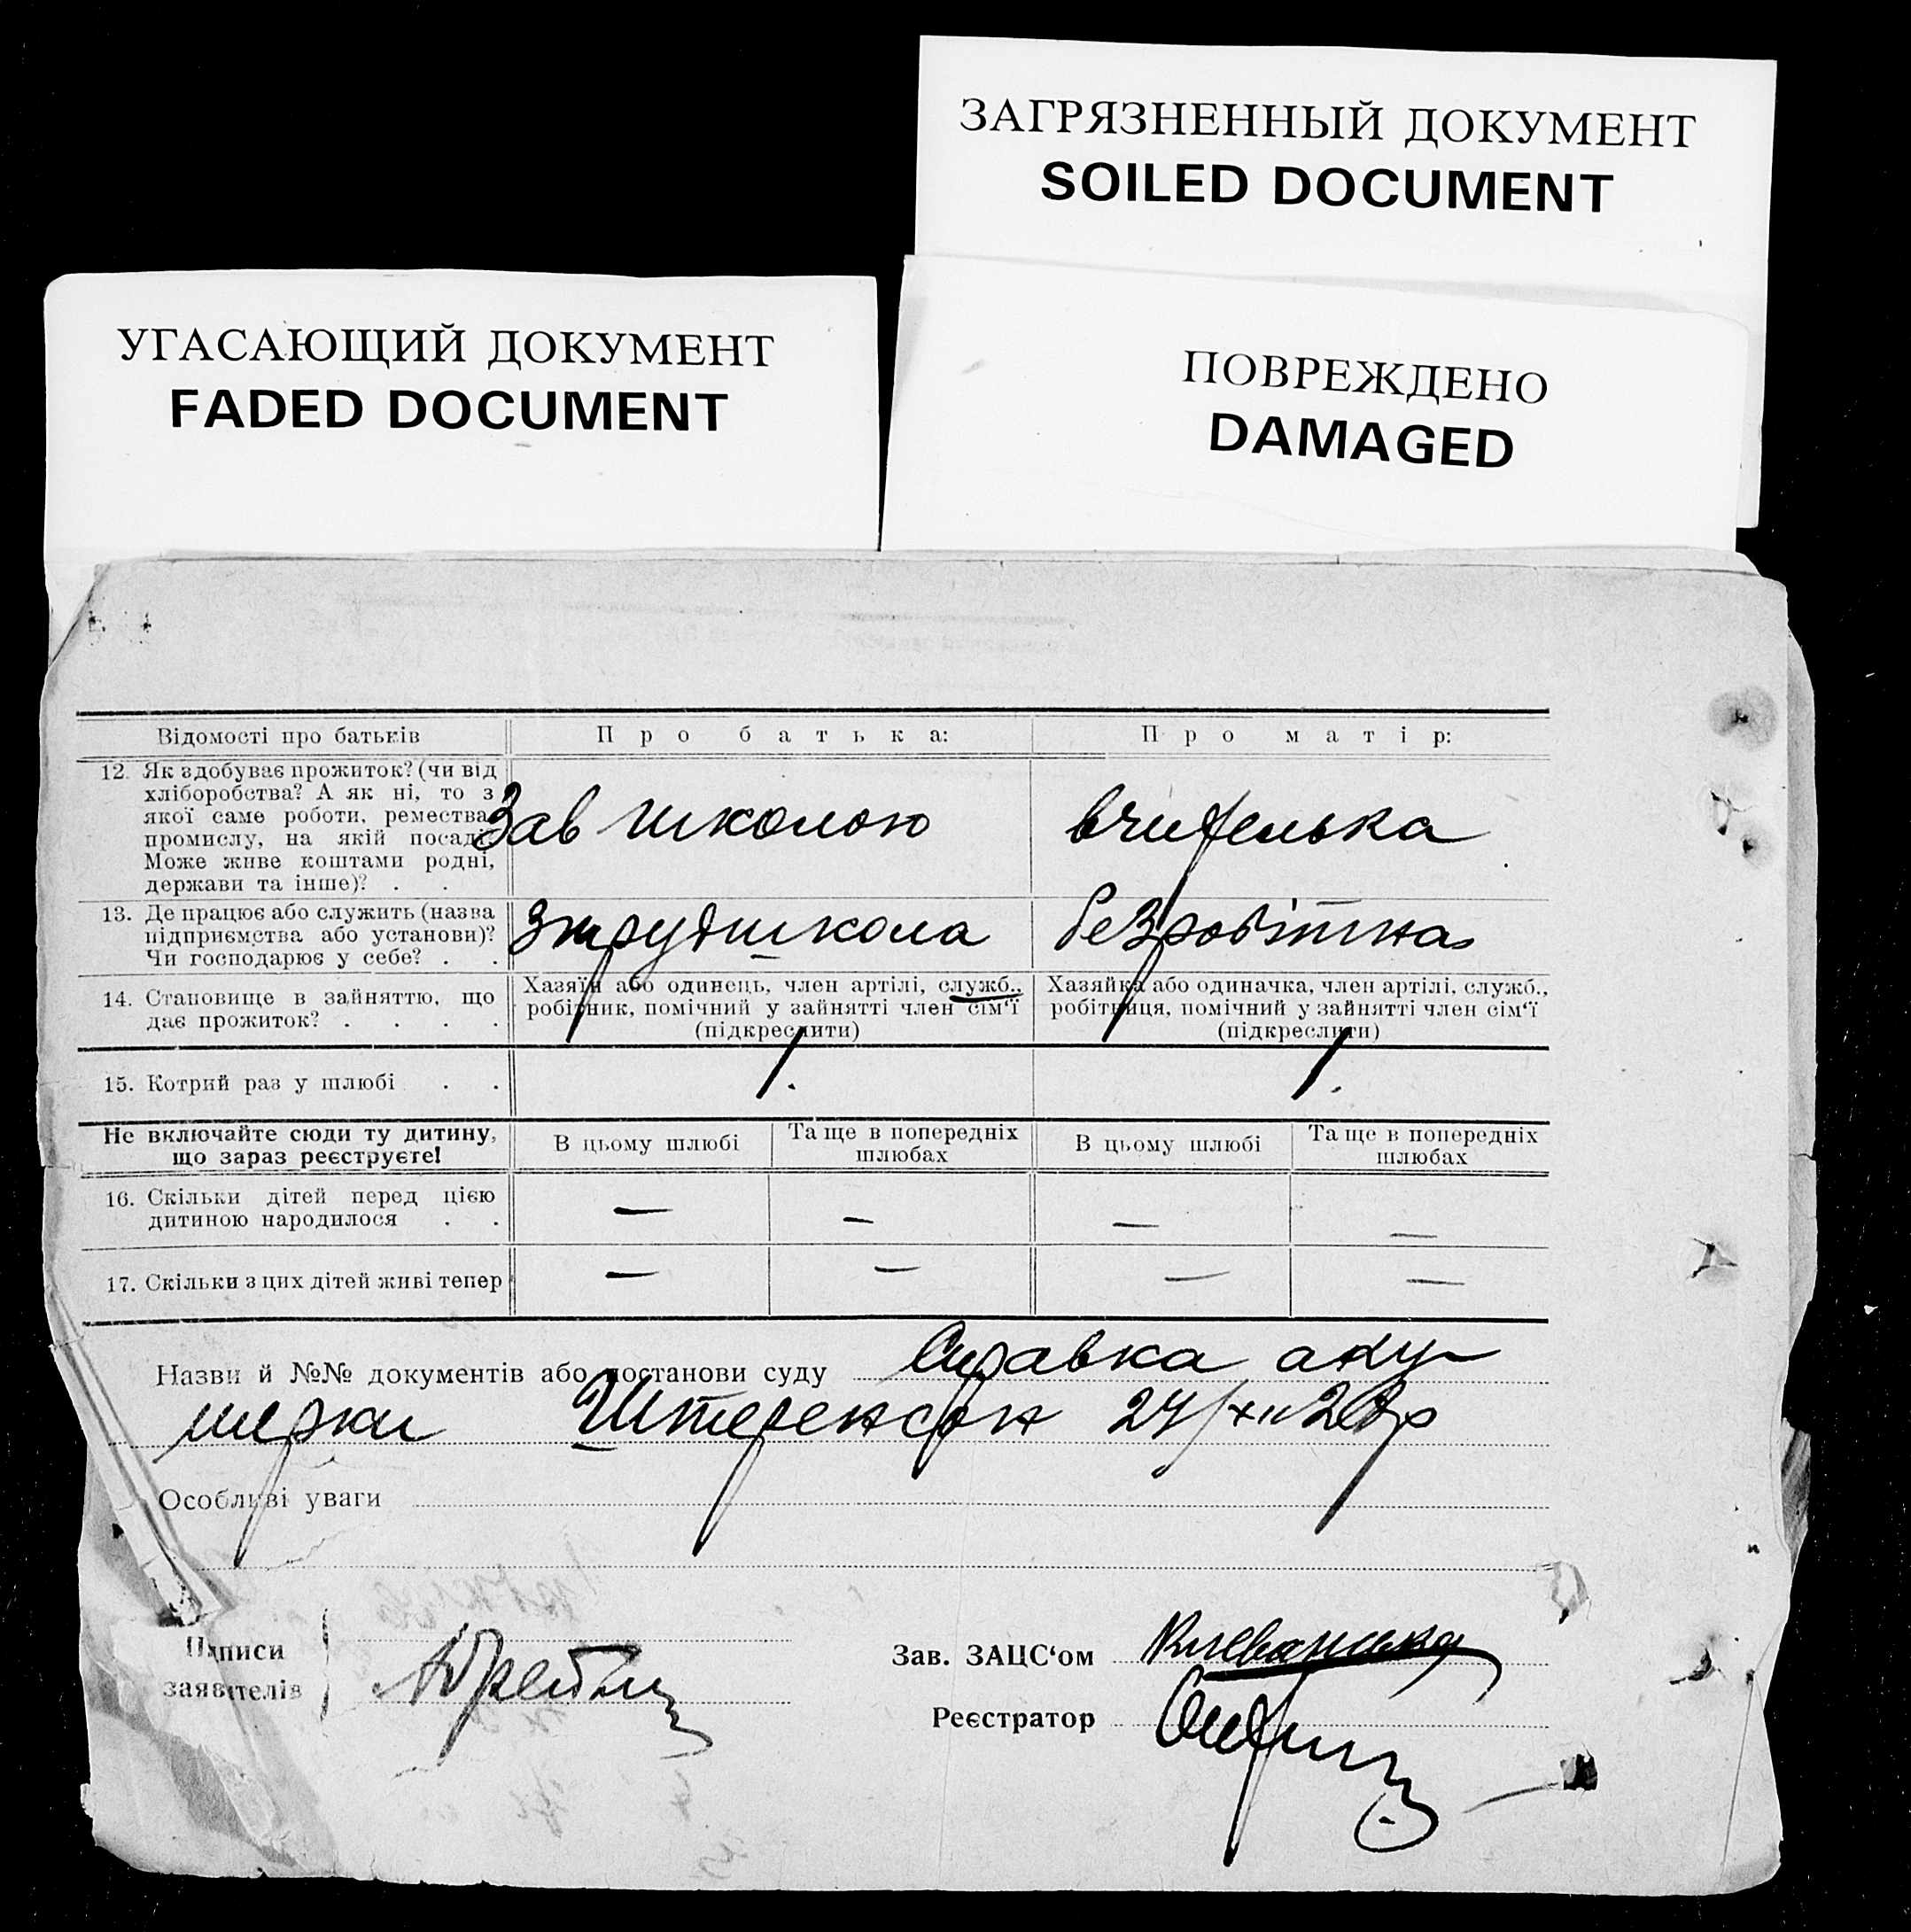 ЗАГРЯЗНЕННЫЙ ДОКУМЕНТ
SOILED DOCUMENT
УГАСАЮЩИЙ ДОКУМЕНТ
FADED DOCUMENT
ПОВРЕЖДЕНО
DAMAGED
Відомості про батьків
Про батька:
Про матір:
12. Як здобуває прожиток? (чи від
хліборобства? А як ні, то з
якої саме роботи, ремества,
промислу, на якій посаді?
Може живе коштами родні,
держави та інше)? . .
Зав школою
вчителька
13. Де працює або служить (назва
підприємства або установи)?
Чи господарює у себе? . .
трудшкола
безробітна
14. Становище в зайняттю, що
дає прожиток? . . . .
Хазяїн або одинець, член артілі, служб.,
робітник, помічний у зайнятті член сім‘ї
(підкреслити)
Хазяйка або одиначка, член артілі, служб.,
робітниця, помічний у зайнятті член сім‘ї
(підкреслити)
15. Котрий раз у шлюбі . .
1.
1.
Не включайте сюди ту дитину,
що зараз реєструєте!
В цьому шлюбі
Та ще в попередніх
шлюбах
В цьому шлюбі
Та ще в попередніх
шлюбах
16. Скільки дітей перед цією
дитиною народилося . .
— — — —
17. Скільки з цих дітей живі тепер
— — — —
Назви й №№ документів або постанови суду Справка аку-
шерки Штеренсон
Особливі уваги
Підписи
заявителів
Зав. ЗАЦС‘ом
Реєстратор